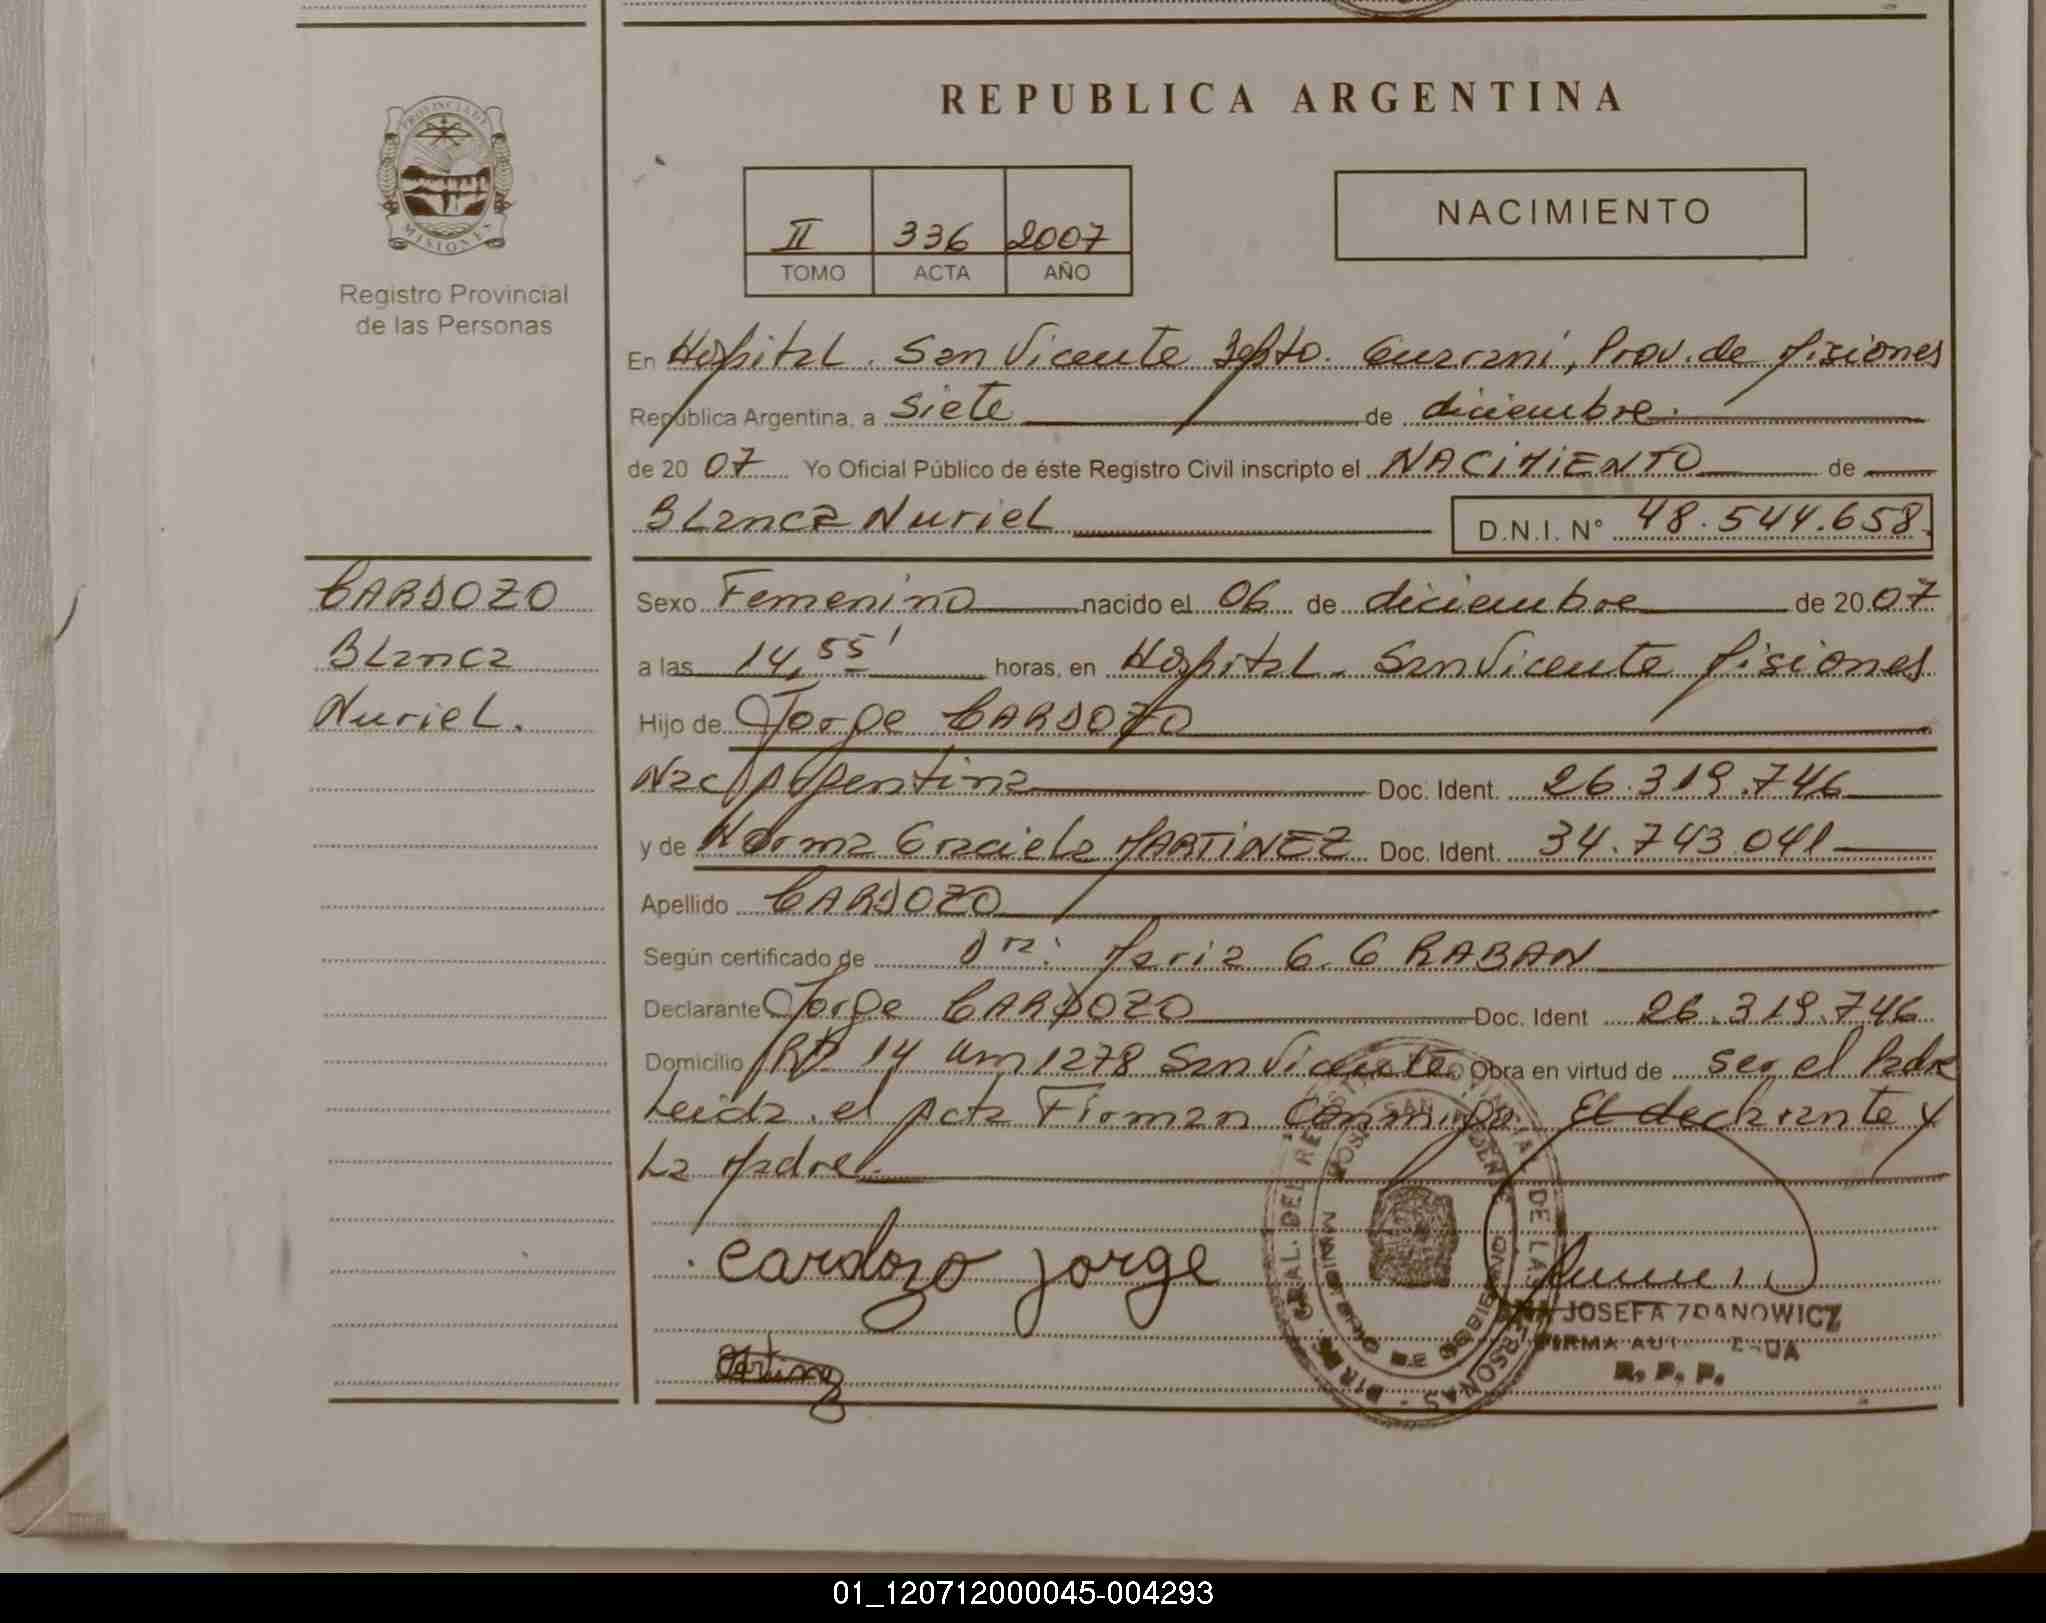 REPUBLICA ARGENTINA
PROVINCIA DE
MISIONES
Registro Provincial
de las Personas
II 336 2007
TOMO ACTA AÑO
NACIMIENTO
En Hospital. San Vicente Depto. Guarani, Prov. de Misiones
República Argentina, a siete de diciembre.
de 2007 Yo Oficial Público de éste Registro Civil inscripto el NACIMIENTO de
Blanca Nuriel D.N.I. N° 48.544.658.
CARDOZO
Blanca
Nuriel.
Sexo Femenino nacido el 06 de diciembre de 2007
a las 14,55' horas, en Hospital. San Vicente Misiones
Hijo de Jorge CARDOZO
Nac Argentina Doc. Ident. 26.319.746
y de Norma Graciela MARTINEZ Doc. Ident. 34.743.041
Apellido CARDOZO
Según certificado de Dra: Maria G. G RABAN
Declarante Jorge CARDOZO Doc. Ident 26.319.746
Domicilio RN 14 Km 1278 San Vicente Obra en virtud de ser el Padre
Leida el Acta Firman Conmigo El declarante y
La Madre.
Cardozo Jorge
JOSEFA ZDANOWICZ
FIRMA
R. P. P.
01_120712000045-004293